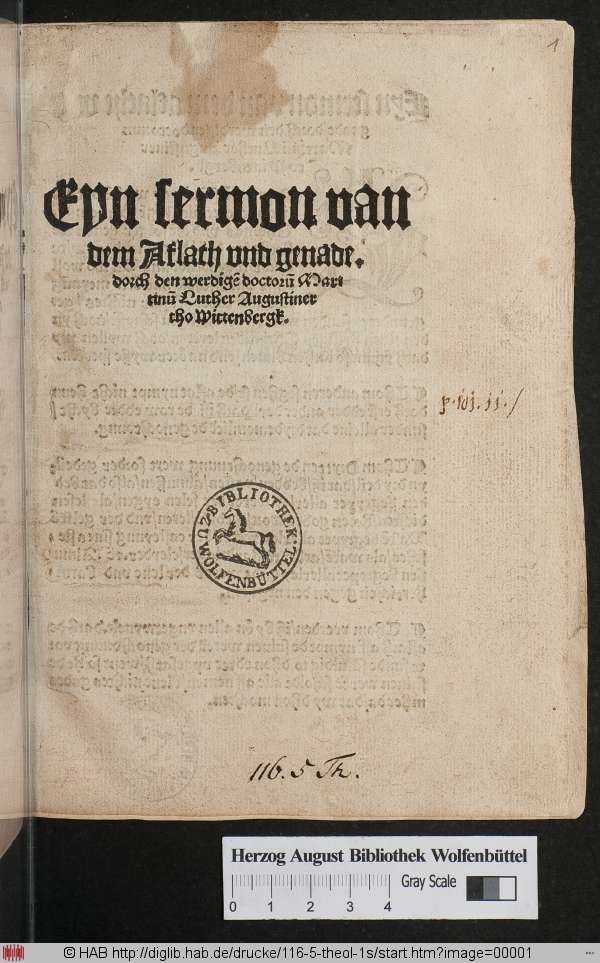 1
Eyn sermon van
dem Aflath vnd genade.
dorch den werdigē doctorū Mar⸗
tinū Luther Augustiner
tho Wittenbergk.
BIBLIOTHEK
ZU WOLFENBÜTTEL.
116. 5 Th.
Herzog August Bibliothek Wolfenbüttel
Gray Scale
0 1 2 3 4
© HAB http://diglib.hab.de/drucke/116-5-theol-1s/start.htm?image=00001